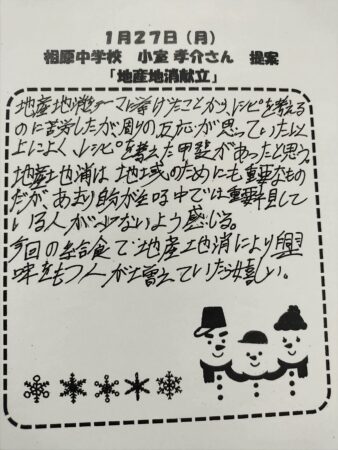 1月27日(月)
相原中学校　小室 孝介さん　提案
「地産地消献立」
地産地消をテーマに挙げたことから、レシピを考える
のに苦労したが周りの反応が思っていた以
上によく、レシピを考えた甲斐があったと思う。
地産地消は地域のためにも重要なもの
だが、あまり自分がいる中では重要視して
いる人が少ないよう感じる。
今回の給食で地産地消により興
味をもつ人が増えていたら嬉しい。